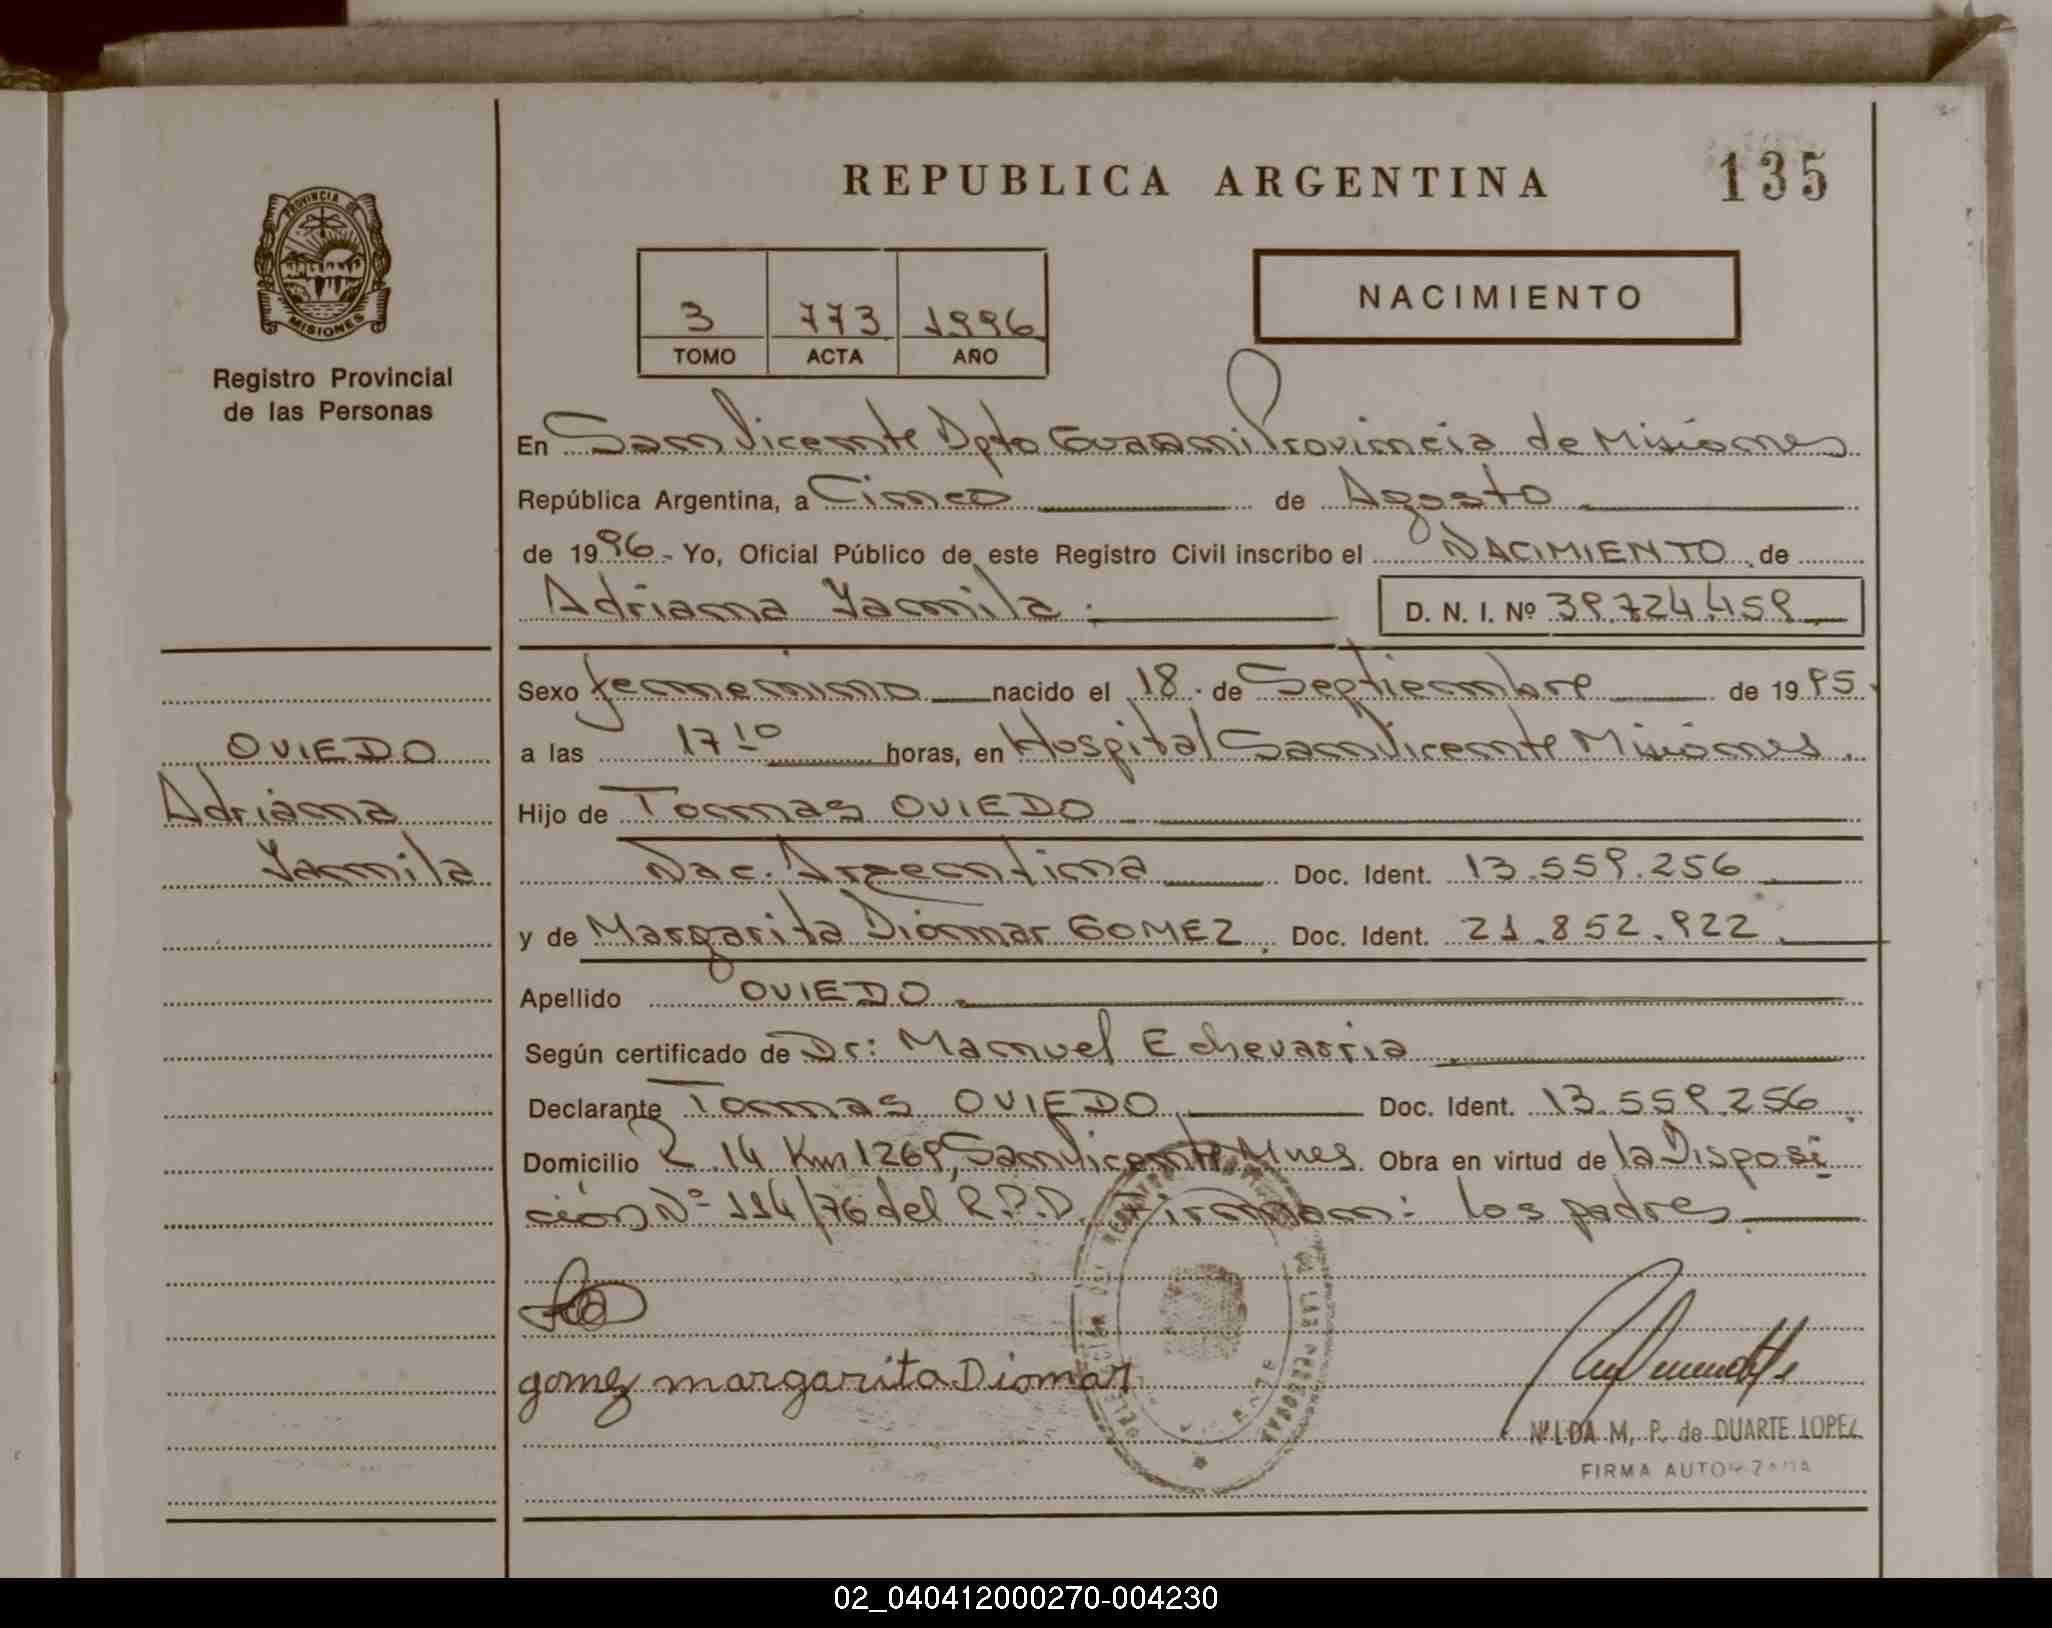 REPUBLICA ARGENTINA
135
PROVINCIA DE
MISIONES
Registro Provincial
de las Personas
3 773 1996
TOMO ACTA AÑO
NACIMIENTO
En San Vicente Dpto Guarani Provincia de Misiones
República Argentina, a Cinco de Agosto
de 1996 - Yo, Oficial Público de este Registro Civil inscribo el NACIMIENTO de
Adriana Yamila. D. N. I. Nº 39.724.459
Sexo femenino nacido el 18 de Septiembre de 1995
a las 17 10 horas, en Hospital San Vicente Misiones.
Hijo de Tomas OVIEDO
Nac. Argentina Doc. Ident. 13.559.256
y de Margarita Diomar GOMEZ. Doc. Ident. 21.852.922
Apellido OVIEDO
Según certificado de Dr: Manuel Echevarria
Declarante Tomas OVIEDO Doc. Ident. 13.559.256
Domicilio R. 14 Km 1269, San Vicente Mnes. Obra en virtud de la Disposi
ción Nº 114/76 del R.P.D. Firman: los padres
OVIEDO
Adriana
Yamila
gomez margarita Diomar
DE LAS PERSONAS
NILDA M. P. de DUARTE LOPEZ
FIRMA AUTORIZADA
02_040412000270-004230